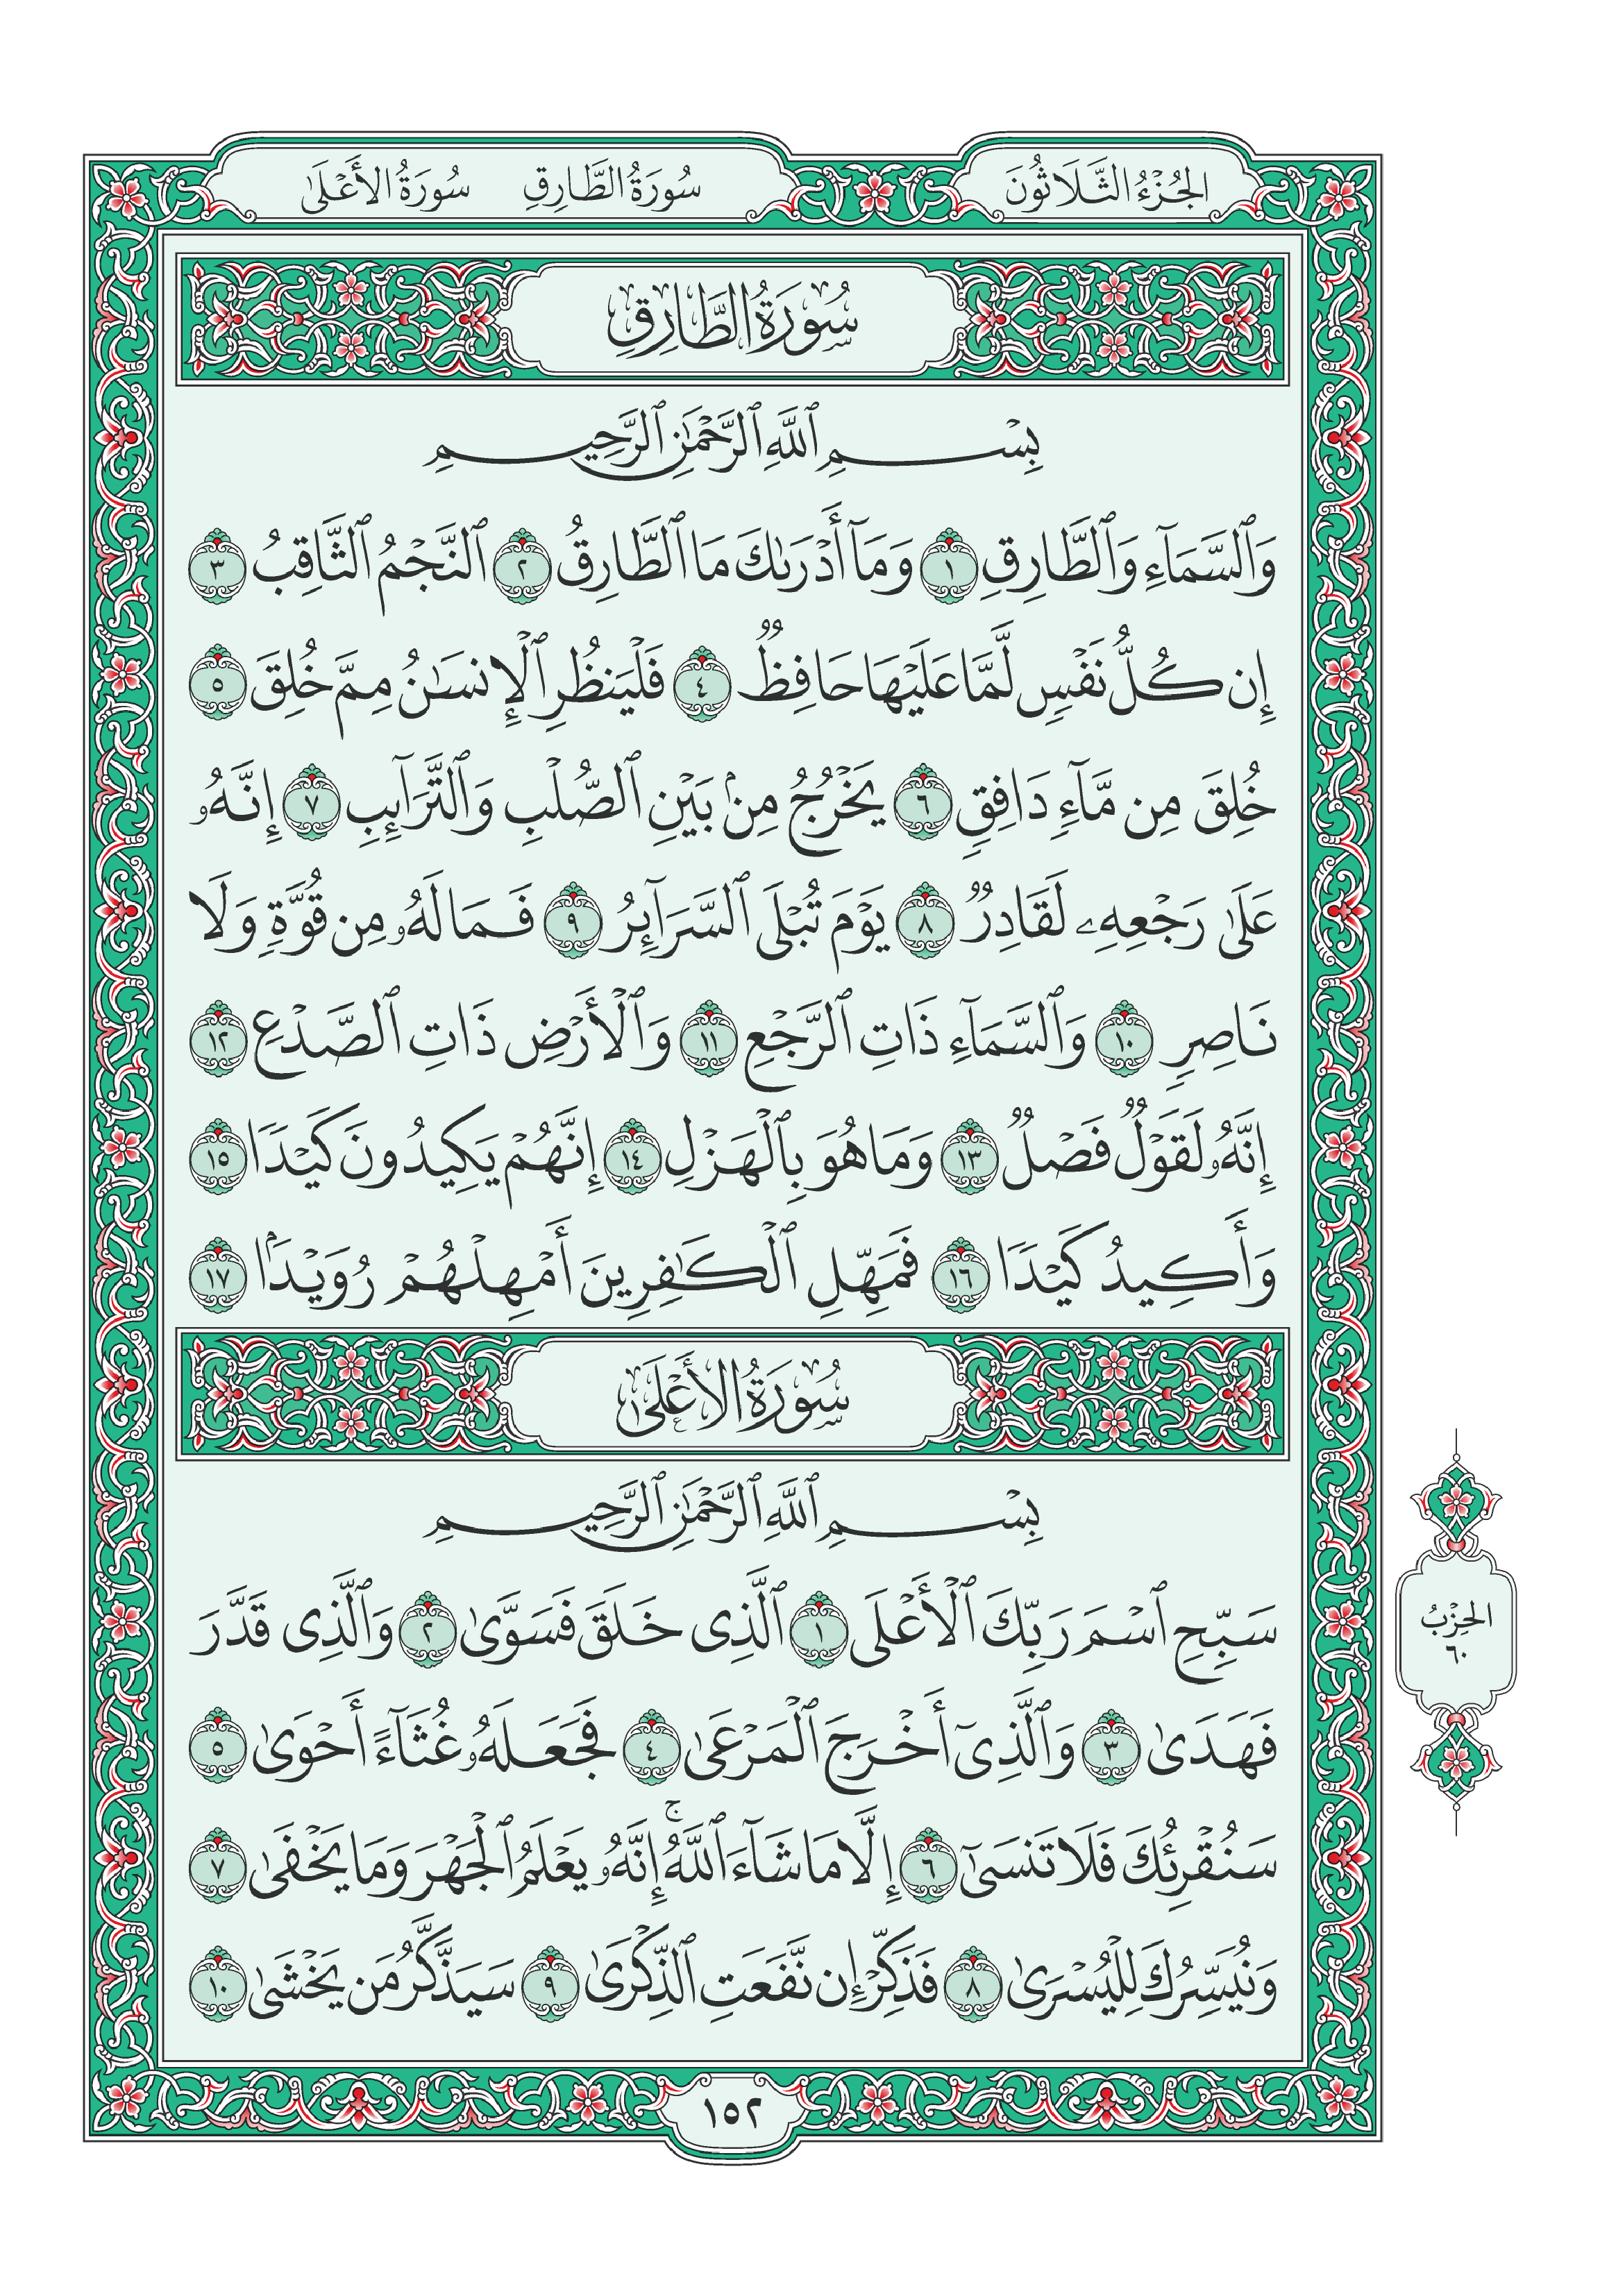 الجُزْءُ الثَّلَاثُونَ سُورَةُ الطَّارِقِ سُورَةُ الأَعْلَىٰ
سُورَةُ الطَّارِقِ
بِسْمِ ٱللَّهِ ٱلرَّحْمَٰنِ ٱلرَّحِيمِ
وَٱلسَّمَآءِ وَٱلطَّارِقِ ١ وَمَآ أَدْرَىٰكَ مَا ٱلطَّارِقُ ٢ ٱلنَّجْمُ ٱلثَّاقِبُ ٣
إِن كُلُّ نَفْسٍ لَّمَّا عَلَيْهَا حَافِظٌ ٤ فَلْيَنظُرِ ٱلْإِنسَٰنُ مِمَّ خُلِقَ ٥
خُلِقَ مِن مَّآءٍ دَافِقٍ ٦ يَخْرُجُ مِنۢ بَيْنِ ٱلصُّلْبِ وَٱلتَّرَآئِبِ ٧ إِنَّهُۥ
عَلَىٰ رَجْعِهِۦ لَقَادِرٌ ٨ يَوْمَ تُبْلَى ٱلسَّرَآئِرُ ٩ فَمَا لَهُۥ مِن قُوَّةٍ وَلَا
نَاصِرٍ ١٠ وَٱلسَّمَآءِ ذَاتِ ٱلرَّجْعِ ١١ وَٱلْأَرْضِ ذَاتِ ٱلصَّدْعِ ١٢
إِنَّهُۥ لَقَوْلٌ فَصْلٌ ١٣ وَمَا هُوَ بِٱلْهَزْلِ ١٤ إِنَّهُمْ يَكِيدُونَ كَيْدًا ١٥
وَأَكِيدُ كَيْدًا ١٦ فَمَهِّلِ ٱلْكَٰفِرِينَ أَمْهِلْهُمْ رُوَيْدَۢا ١٧
سُورَةُ الأَعْلَىٰ
بِسْمِ ٱللَّهِ ٱلرَّحْمَٰنِ ٱلرَّحِيمِ
سَبِّحِ ٱسْمَ رَبِّكَ ٱلْأَعْلَى ١ ٱلَّذِى خَلَقَ فَسَوَّىٰ ٢ وَٱلَّذِى قَدَّرَ
فَهَدَىٰ ٣ وَٱلَّذِىٓ أَخْرَجَ ٱلْمَرْعَىٰ ٤ فَجَعَلَهُۥ غُثَآءً أَحْوَىٰ ٥
سَنُقْرِئُكَ فَلَا تَنسَىٰٓ ٦ إِلَّا مَا شَآءَ ٱللَّهُ ۚ إِنَّهُۥ يَعْلَمُ ٱلْجَهْرَ وَمَا يَخْفَىٰ ٧
وَنُيَسِّرُكَ لِلْيُسْرَىٰ ٨ فَذَكِّرْ إِن نَّفَعَتِ ٱلذِّكْرَىٰ ٩ سَيَذَّكَّرُ مَن يَخْشَىٰ ١٠
الحِزْبُ
٦٠
١٥٢